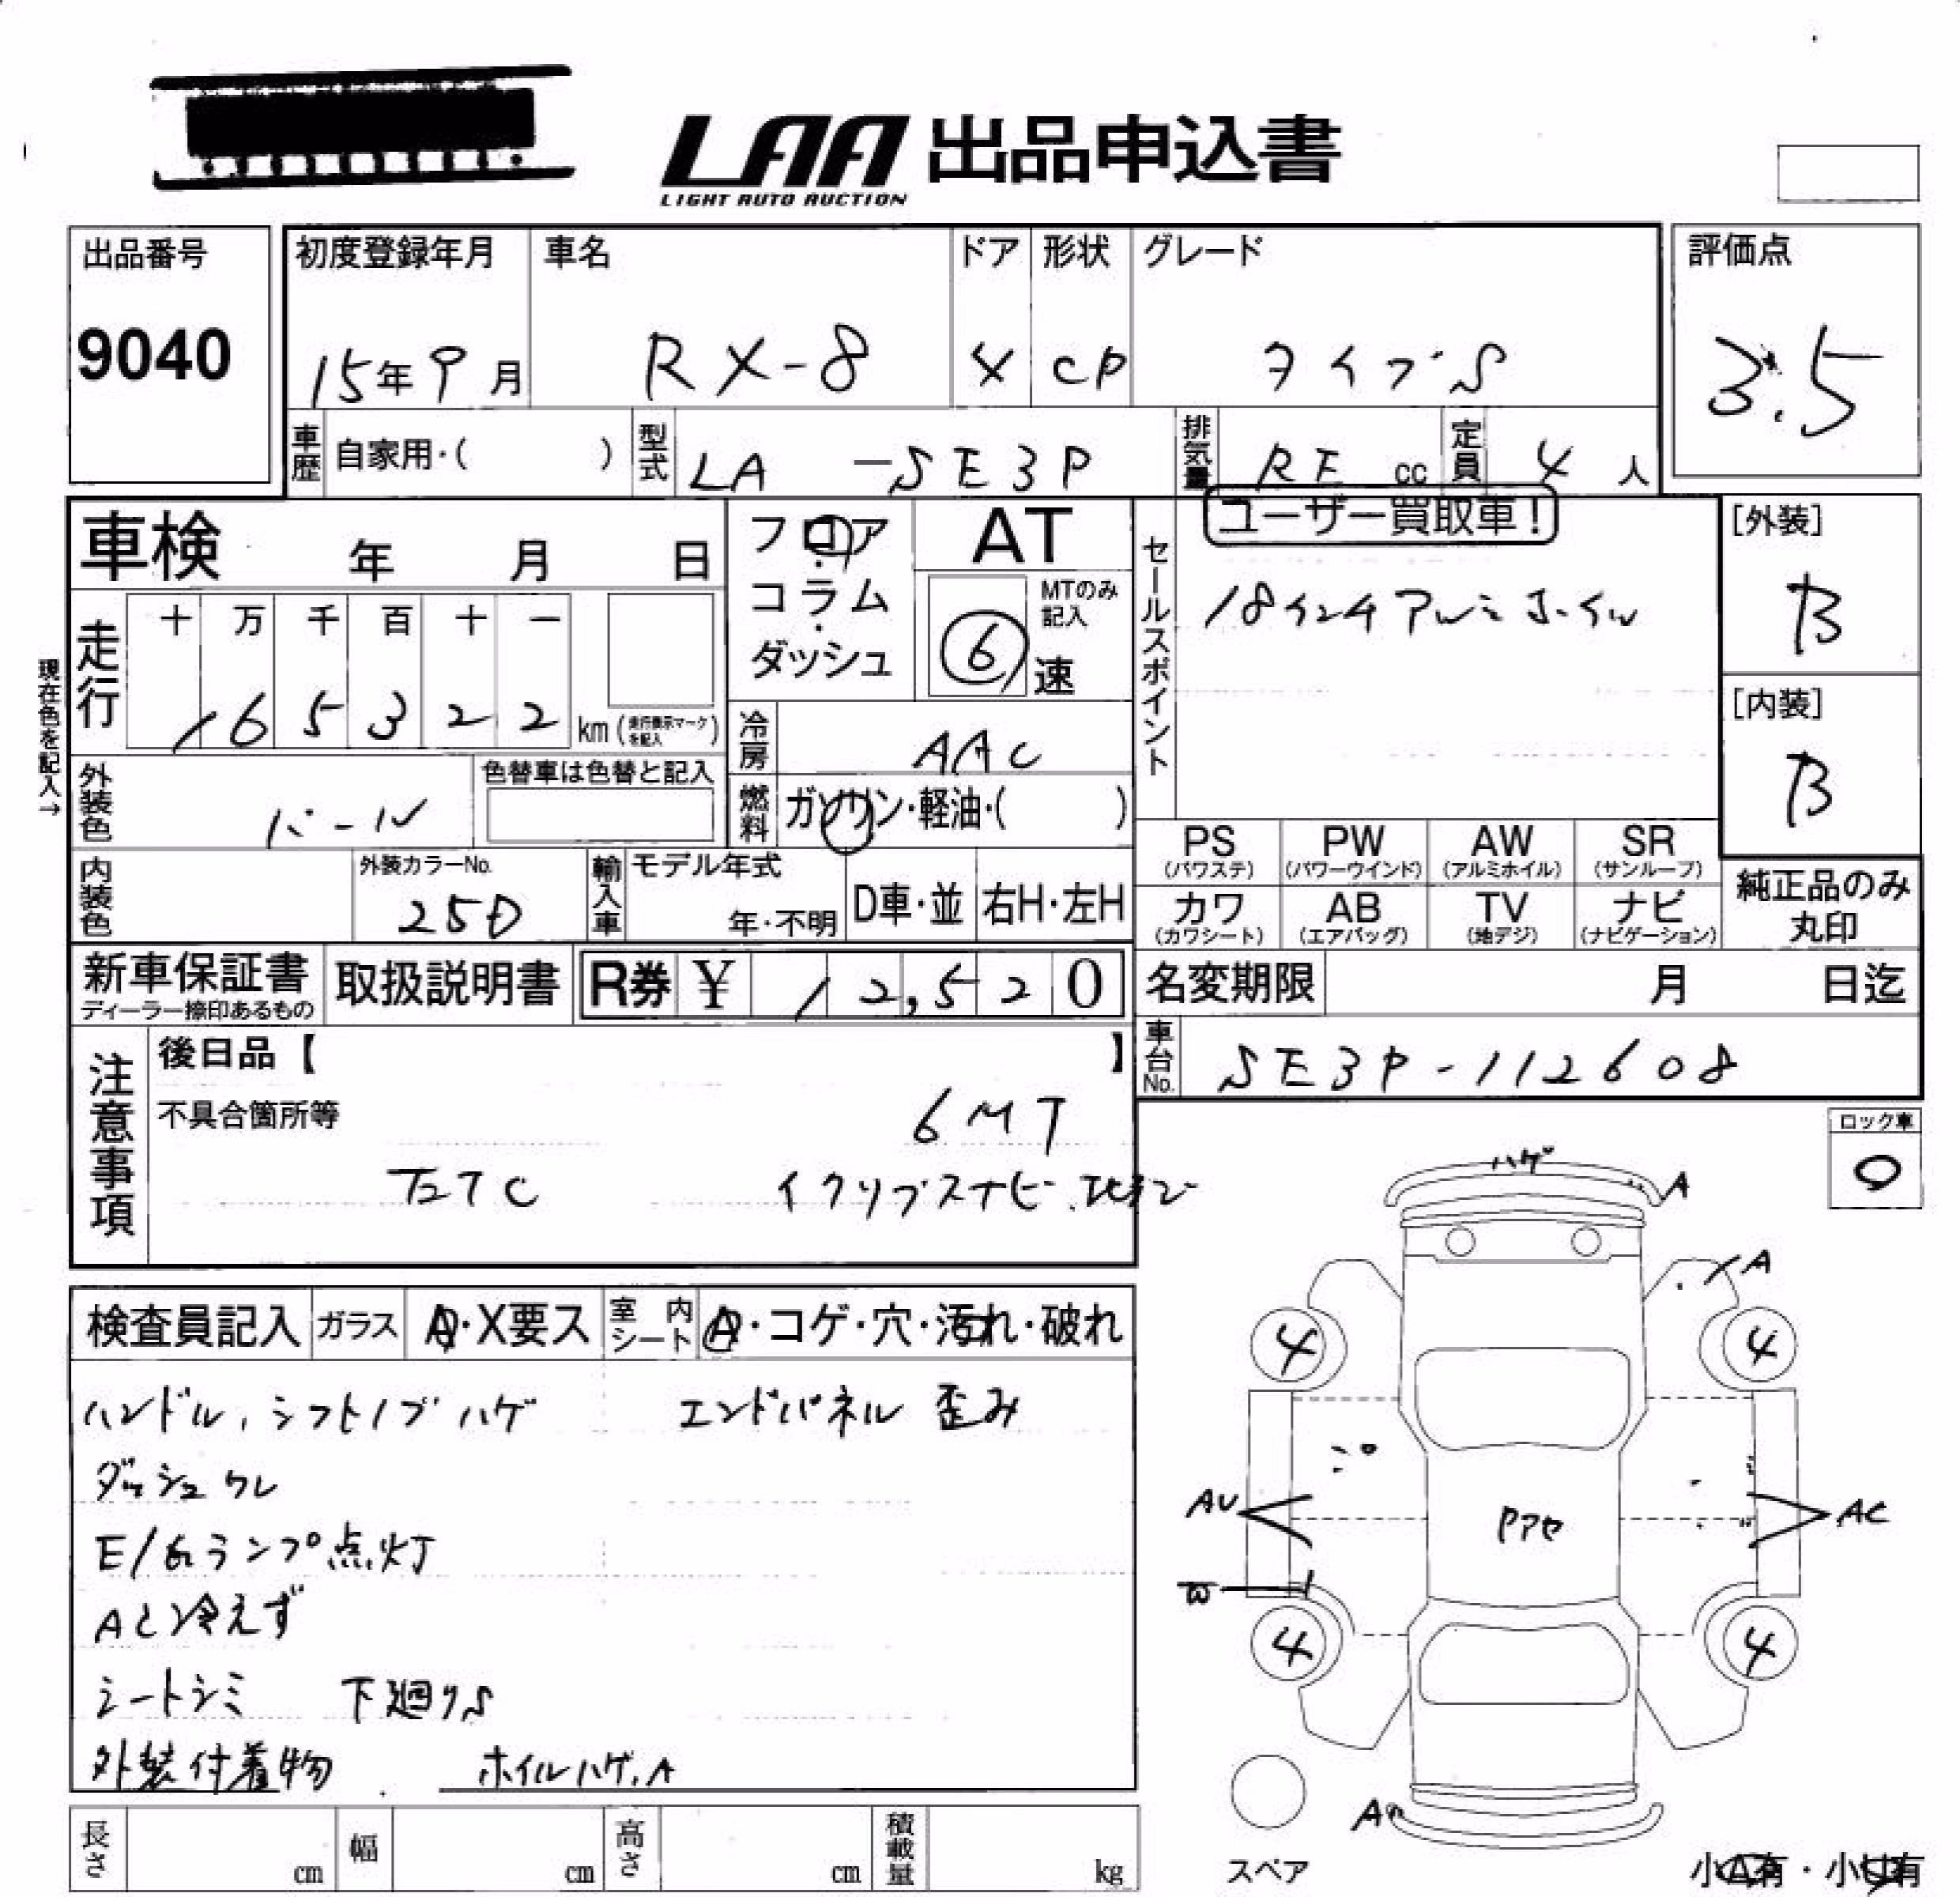 LAA 出品申込書
LIGHT AUTO AUCTION
出品番号
9040
初度登録年月 車名 ドア 形状 グレード
15年9月 RX-8 4 CP タイプS
評価点
3.5
車歴 自家用・( ) 型式 LA -SE3P 排気量 RE cc 定員 4 人
車検 年 月 日
フロア・コラム・ダッシュ
AT
MTのみ記入
6 速
セールスポイント
ユーザー買取車!
18インチアルミホイル
[外装]
B
[内装]
B
現在色を記入→
走行
十 万 千 百 十 一
1 6 5 3 2 2 km (走行表示マークを記入)
冷房 AAC
燃料 ガソリン・軽油・( )
外装色 パール
色替車は色替と記入
内装色
外装カラーNo.
25D
輸入車 モデル年式
年・不明 D車・並 右H・左H
PS (パワステ) PW (パワーウインド) AW (アルミホイル) SR (サンルーフ)
カワ (カワシート) AB (エアバッグ) TV (地デジ) ナビ (ナビゲーション)
純正品のみ丸印
新車保証書
ディーラー捺印あるもの
取扱説明書
R券 ¥ 12,520
名変期限 月 日迄
車台No. SE3P-112608
注意事項
後日品【 】
不具合箇所等
6MT
ETC イクリプスナビ.地デジ
ロック車
0
検査員記入 ガラス A・X要ス 室内シート A・コゲ・穴・汚れ・破れ
ハンドル、シフトノブハゲ エンドパネル 歪み
ダッシュワレ
E/Gランプ点灯
AC冷えず
シートシミ 下廻りS
外装付着物 ホイルハゲ、A
ハゲ A
A
4 4
AU AC
W
4 4
A
スペア
小A有・小U有
長さ cm 幅 cm 高さ cm 積載量 kg